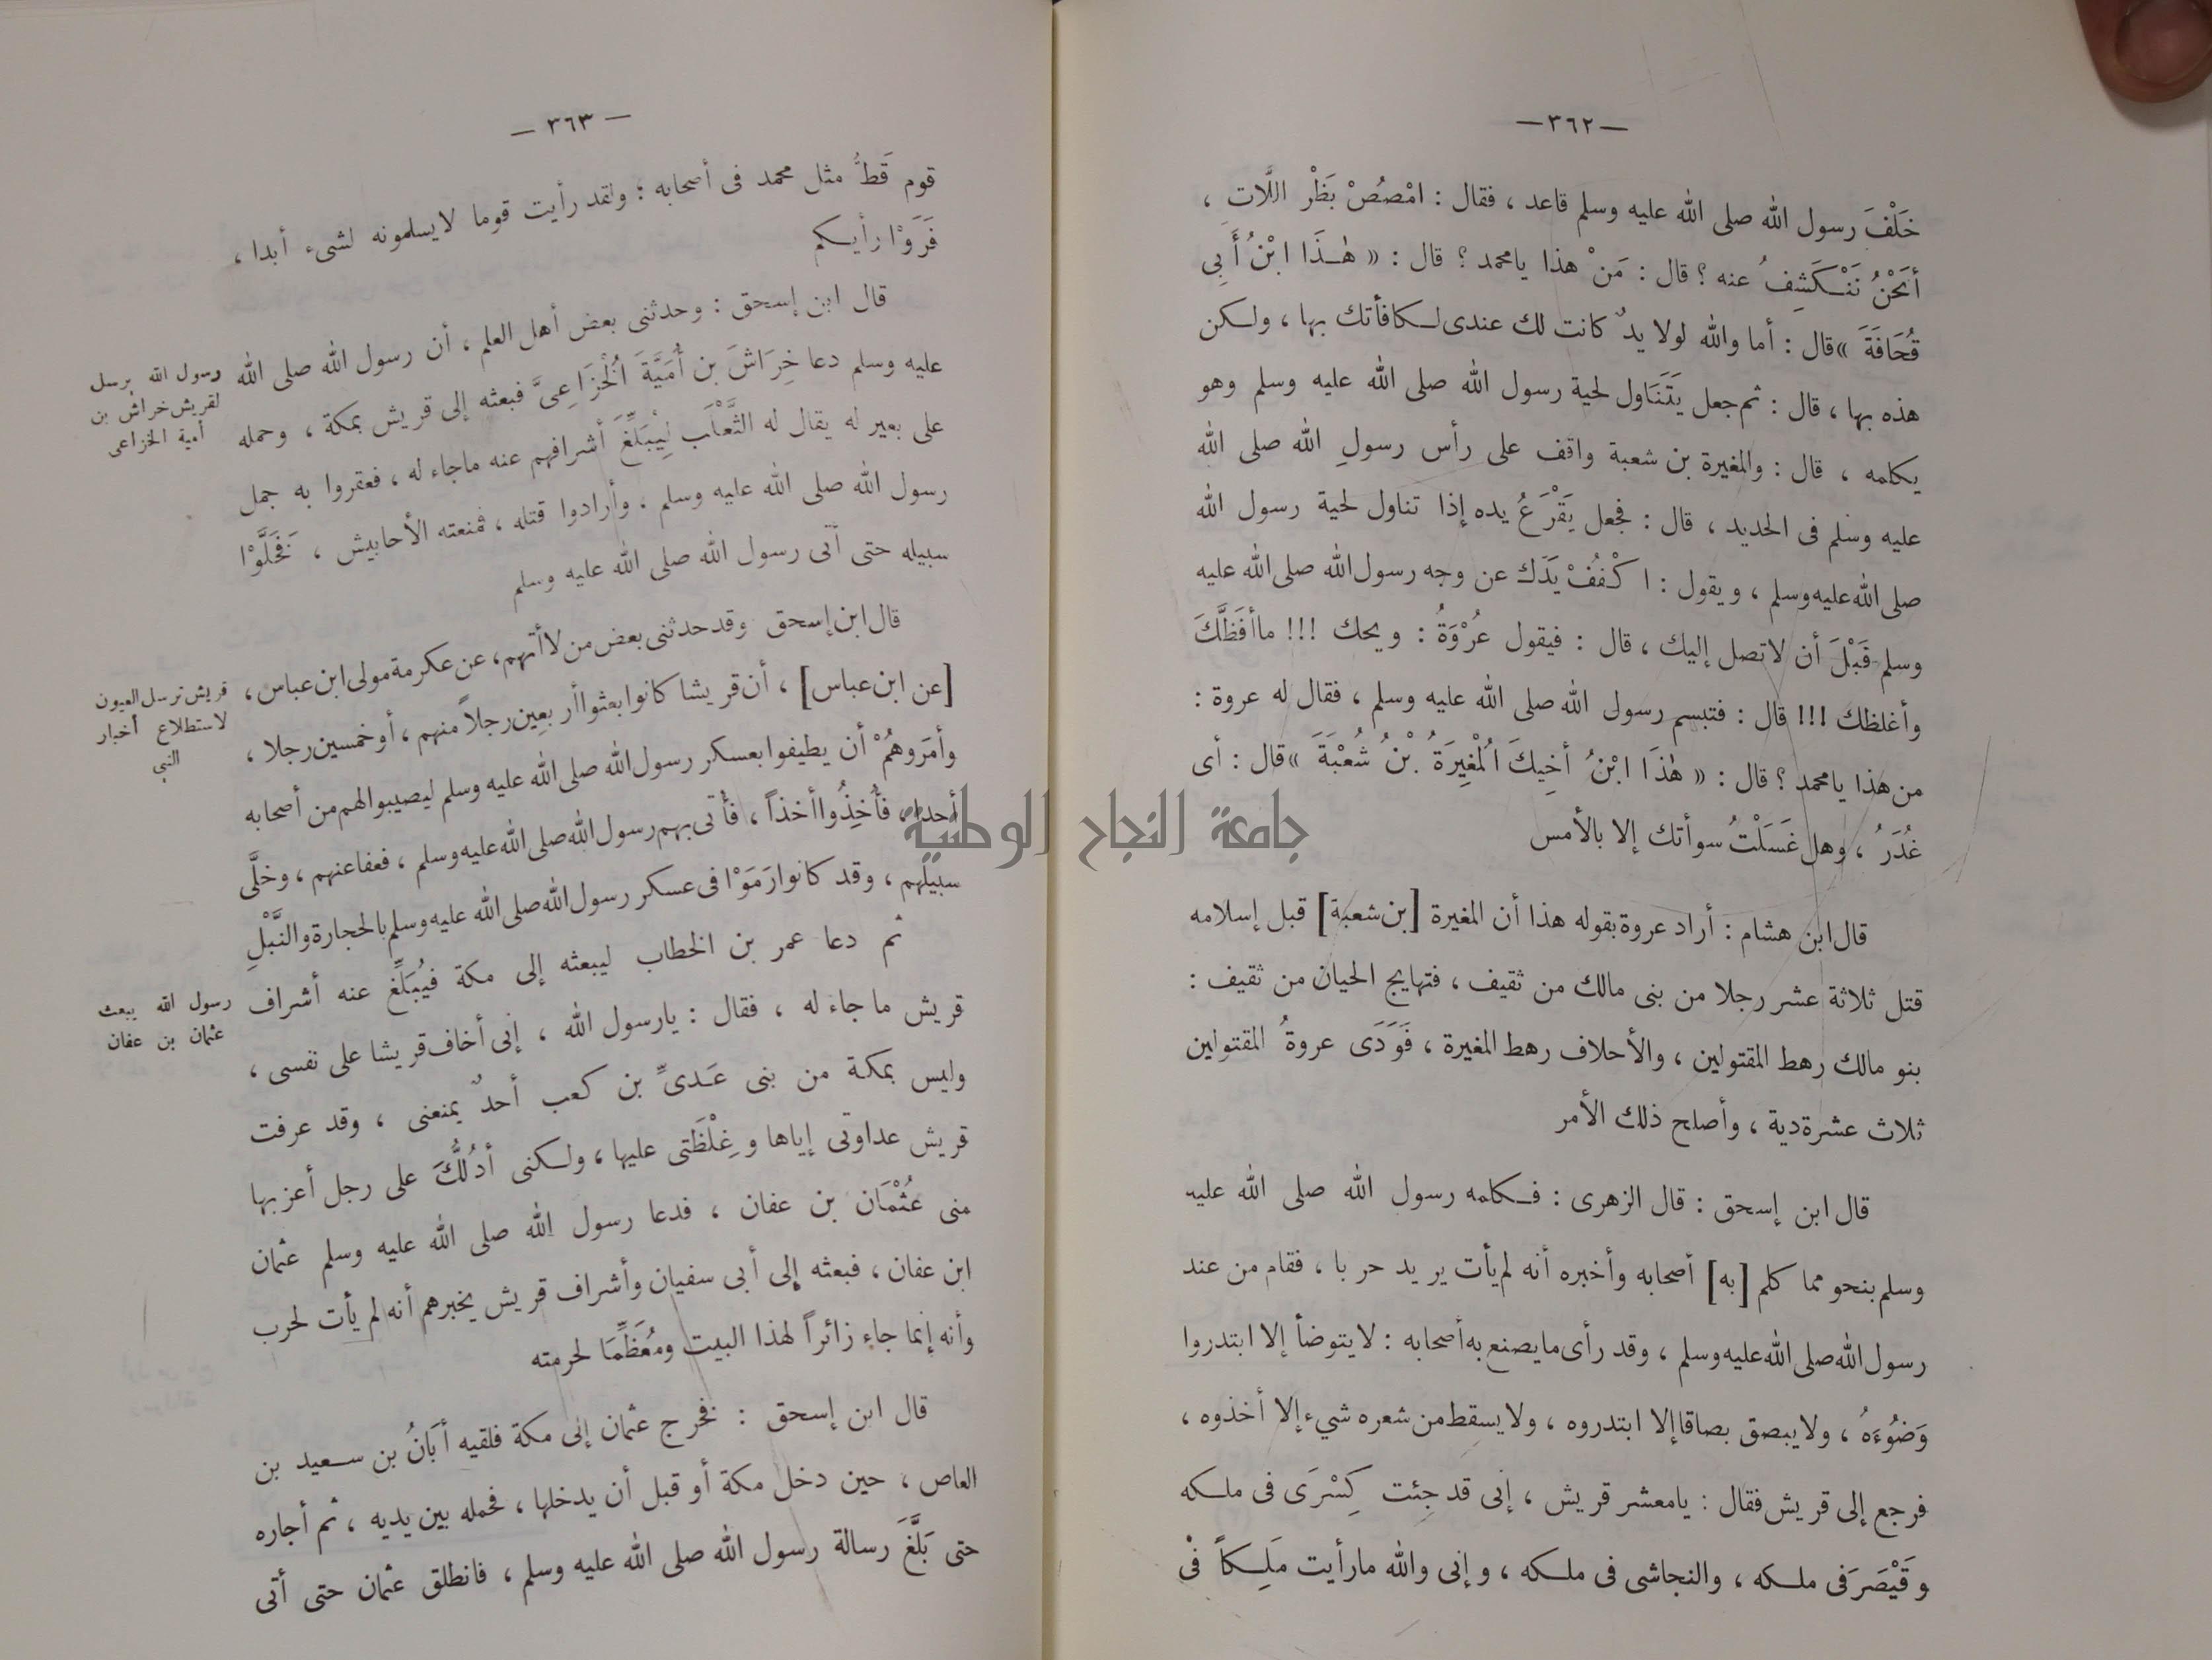 —٣٦٢—
خَلْفَ رسول الله صلى الله عليه وسلم قاعد ، فقال : امْصُصْ بَظْر اللَّاتِ ،
أنَحْنُ نَنْكَشِفُ عنه ؟ قال : مَنْ هذا يا محمد ؟ قال : « هٰذَا ابْنُ أَبِي
قُحَافَةَ » قال : أما والله لولا يدٌ كانت لك عندى لكافأتك بها ، ولكن
هذه بها ، قال : ثم جعل يَتَنَاول لحية رسول الله صلى الله عليه وسلم وهو
يكلمه ، قال : والمغيرة بن شعبة واقف على رأس رسولِ الله صلى الله
عليه وسلم فى الحديد ، قال : فجعل يَقْرَعُ يده إذا تناول لحية رسول الله
صلى الله عليه وسلم ، ويقول : اكْفُفْ يَدَك عن وجه رسول الله صلى الله عليه
وسلم قَبْلَ أن لا تصل إليك ، قال : فيقول عُرْوَةُ : ويحك !!! ما أفَظَّكَ
وأغلظك !!! قال : فتبسم رسول الله صلى الله عليه وسلم ، فقال له عروة :
من هذا يا محمد ؟ قال : « هٰذَا ابْنُ أخِيكَ الْمُغِيرَةُ بْنُ شُعْبَةَ » قال : أى
غُدَرُ ، وهل غَسَلْتُ سوأتك إلا بالأمس
قال ابن هشام : أراد عروة بقوله هذا أن المغيرة [بن شعبة] قبل إسلامه
قتل ثلاثة عشر رجلا من بنى مالك من ثقيف ، فتهايج الحيان من ثقيف :
بنو مالك رهط المقتولين ، والأحلاف رهط المغيرة ، فَوَدَى عروةُ المقتولين
ثلاث عشرة دية ، وأصلح ذلك الأمر
قال ابن إسحق : قال الزهرى : فكلمه رسول الله صلى الله عليه
وسلم بنحو مما كلم [به] أصحابه وأخبره أنه لم يأت يريد حربا ، فقام من عند
رسول الله صلى الله عليه وسلم ، وقد رأى ما يصنع به أصحابه : لا يتوضأ إلا ابتدروا
وَضُوءَهُ ، ولا يبصق بصاقا إلا ابتدروه ، ولا يسقط من شعره شيء إلا أخذوه ،
فرجع إلى قريش فقال : يا معشر قريش ، إنى قد جِئت كِسْرَى فى ملكه
وقَيْصَرَ فى ملكه ، والنجاشى فى ملكه ، وإنى والله ما رأيت مَلِكاً فى
— ٣٦٣ —
قوم قَطُّ مثل محمد فى أصحابه ; ولقد رأيت قوما لا يسلمونه لشىء أبدا ،
فَرَوْا رأيكم
قال ابن إسحق : وحدثنى بعض أهل العلم ، أن رسول الله صلى الله
عليه وسلم دعا خِرَاشَ بن أُمَيَّةَ الْخُزَاعِىَّ فبعثه إلى قريش بمكة ، وحمله
على بعير له يقال له الثَّعْلَب لِيُبَلِّغَ أشرافهم عنه ما جاء له ، فعقروا به جمل
رسول الله صلى الله عليه وسلم . وأرادوا قتله ، فمنعته الأحابيش ، فَخَلَّوْا
سبيله حتى أتى رسول الله صلى الله عليه وسلم
رسول الله يرسل
لقريش خراش بن
أمية الخزاعى
قال ابن إسحق وقد حدثنى بعض من لا أتهم ، عن عكرمة مولى ابن عباس ،
[عن ابن عباس] ، أن قريشا كانوا بعثوا أربعين رجلاً منهم ، أو خمسين رجلا ،
وأمَروهُمْ أن يطيفوا بعسكر رسول الله صلى الله عليه وسلم ليصيبوا لهم من أصحابه
أحدا ، فأُخِذُوا أخذاً ، فأُتى بهم رسول الله صلى الله عليه وسلم ، فعفا عنهم ، وخلَّى
سبيلهم ، وقد كانوا رَمَوْا فى عسكر رسول الله صلى الله عليه وسلم بالحجارة والنَّبْلِ
قريش ترسل العيون
لاستطلاع أخبار
النبى
ثم دعا عمر بن الخطاب ليبعثه إلى مكة فيُبَلِّغ عنه أشراف
قريش ما جاء له ، فقال : يا رسول الله ، إنى أخاف قريشا على نفسى ،
وليس بمكة من بنى عَدىِّ بن كعب أحدٌ يمنعنى ، وقد عرفت
قريش عداوتى إياها وغِلْظَتى عليها ، ولكنى أدُلُّكَ على رجل أعز بها
منى عُثْمَان بن عفان ، فدعا رسول الله صلى الله عليه وسلم عثمان
ابن عفان ، فبعثه إلى أبى سفيان وأشراف قريش يخبرهم أنه لم يأت لحرب
وأنه إنما جاء زائراً لهذا البيت ومُعَظِّمًا لحرمته
رسول الله يبعث
عثمان بن عفان
قال ابن إسحق : فخرج عثمان إلى مكة فلقيه أبَانُ بن سعيد بن
العاص ، حين دخل مكة أو قبل أن يدخلها ، فحمله بين يديه ، ثم أجاره
حتى بَلَّغَ رسالة رسول الله صلى الله عليه وسلم ، فانطلق عثمان حتى أتى
جامعة النجاح الوطنية